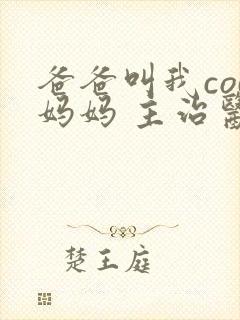 爸爸叫我co
妈妈 主治醫
楚王庭